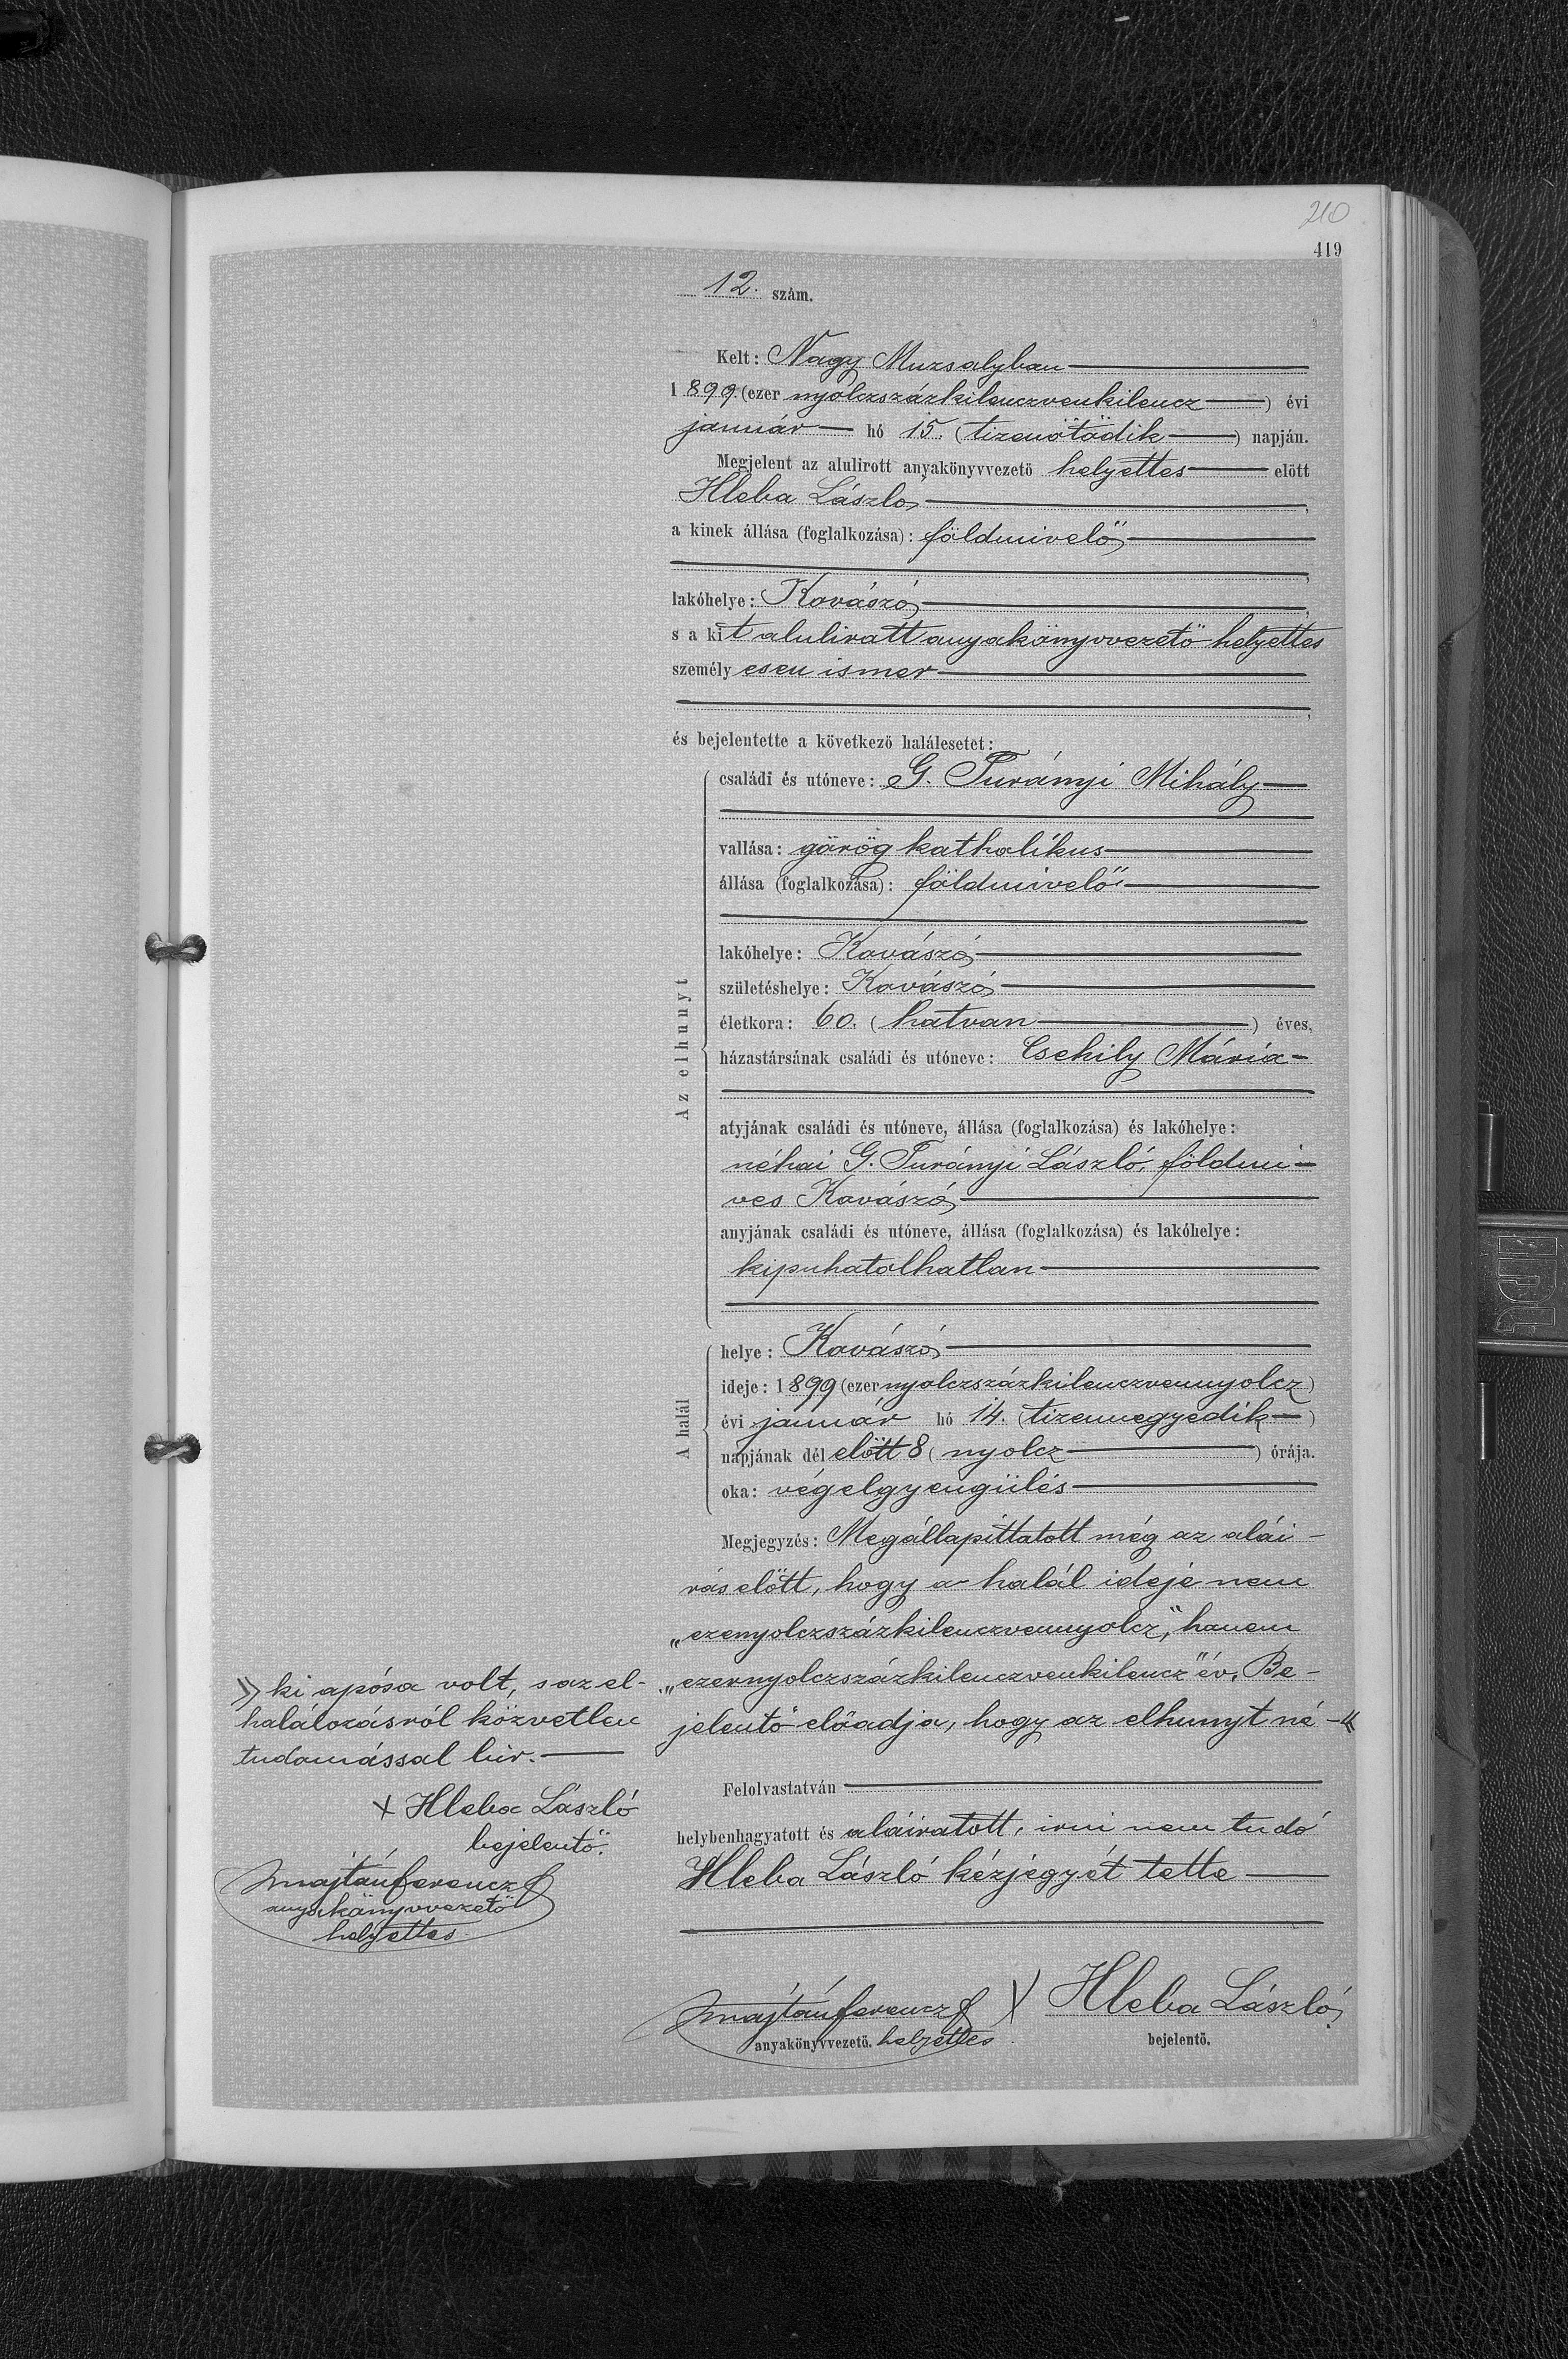 210
419
12. szám.
Kelt: Nagy Muzsalyban
1899. (ezer nyolczszázkilenczvenkilencz) évi
január hó 15. (tizenötödik) napján.
Megjelent az alulirott anyakönyvvezető helyettes előtt
Hleba László,
a kinek állása (foglalkozása): földmivelő
lakóhelye: Kovászó,
s a kit alulirott anyakönyvvezető helyettes
személyesen ismer
és bejelentette a következő halálesetet:
Az elhunyt
családi és utóneve: G. Turányi Mihály
vallása: görög katholikus
állása (foglalkozása): földmivelő
lakóhelye: Kovászó
születéshelye: Kovászó
életkora: 60. (hatvan) éves,
házastársának családi és utóneve: Csekily Mária
atyjának családi és utóneve, állása (foglalkozása) és lakóhelye:
néhai G. Turányi László, földmi-
ves Kovászó
anyjának családi és utóneve, állása (foglalkozása) és lakóhelye:
kipuhatolhatlan
A halál
helye: Kovászó
ideje: 1899 (ezer nyolczszázkilenczvennyolcz)
évi január hó 14. (tizennegyedik)
napjának dél előtt 8 (nyolcz) órája.
oka: végelgyengülés
Megjegyzés: Megállapíttatott még az alái-
rás előtt, hogy a halál ideje nem
„ezenyolczszázkilenczvennyolcz", hanem
„ezernyolczszázkilenczvenkilencz" év. Be-
jelentő előadja, hogy az elhunyt né-«
» ki apósa volt, s az el-
halálozásról közvetlen
tudomással bir.
X Hleba László
bejelentő.
Majtán Ferencz
anyakönyvvezető
helyettes.
Felolvastatván
helybenhagyatott és aláiratott, irni nem tudó
Hleba László kézjegyét tette
Majtán Ferencz X Hleba László
anyakönyvvezető. helyettes bejelentő.